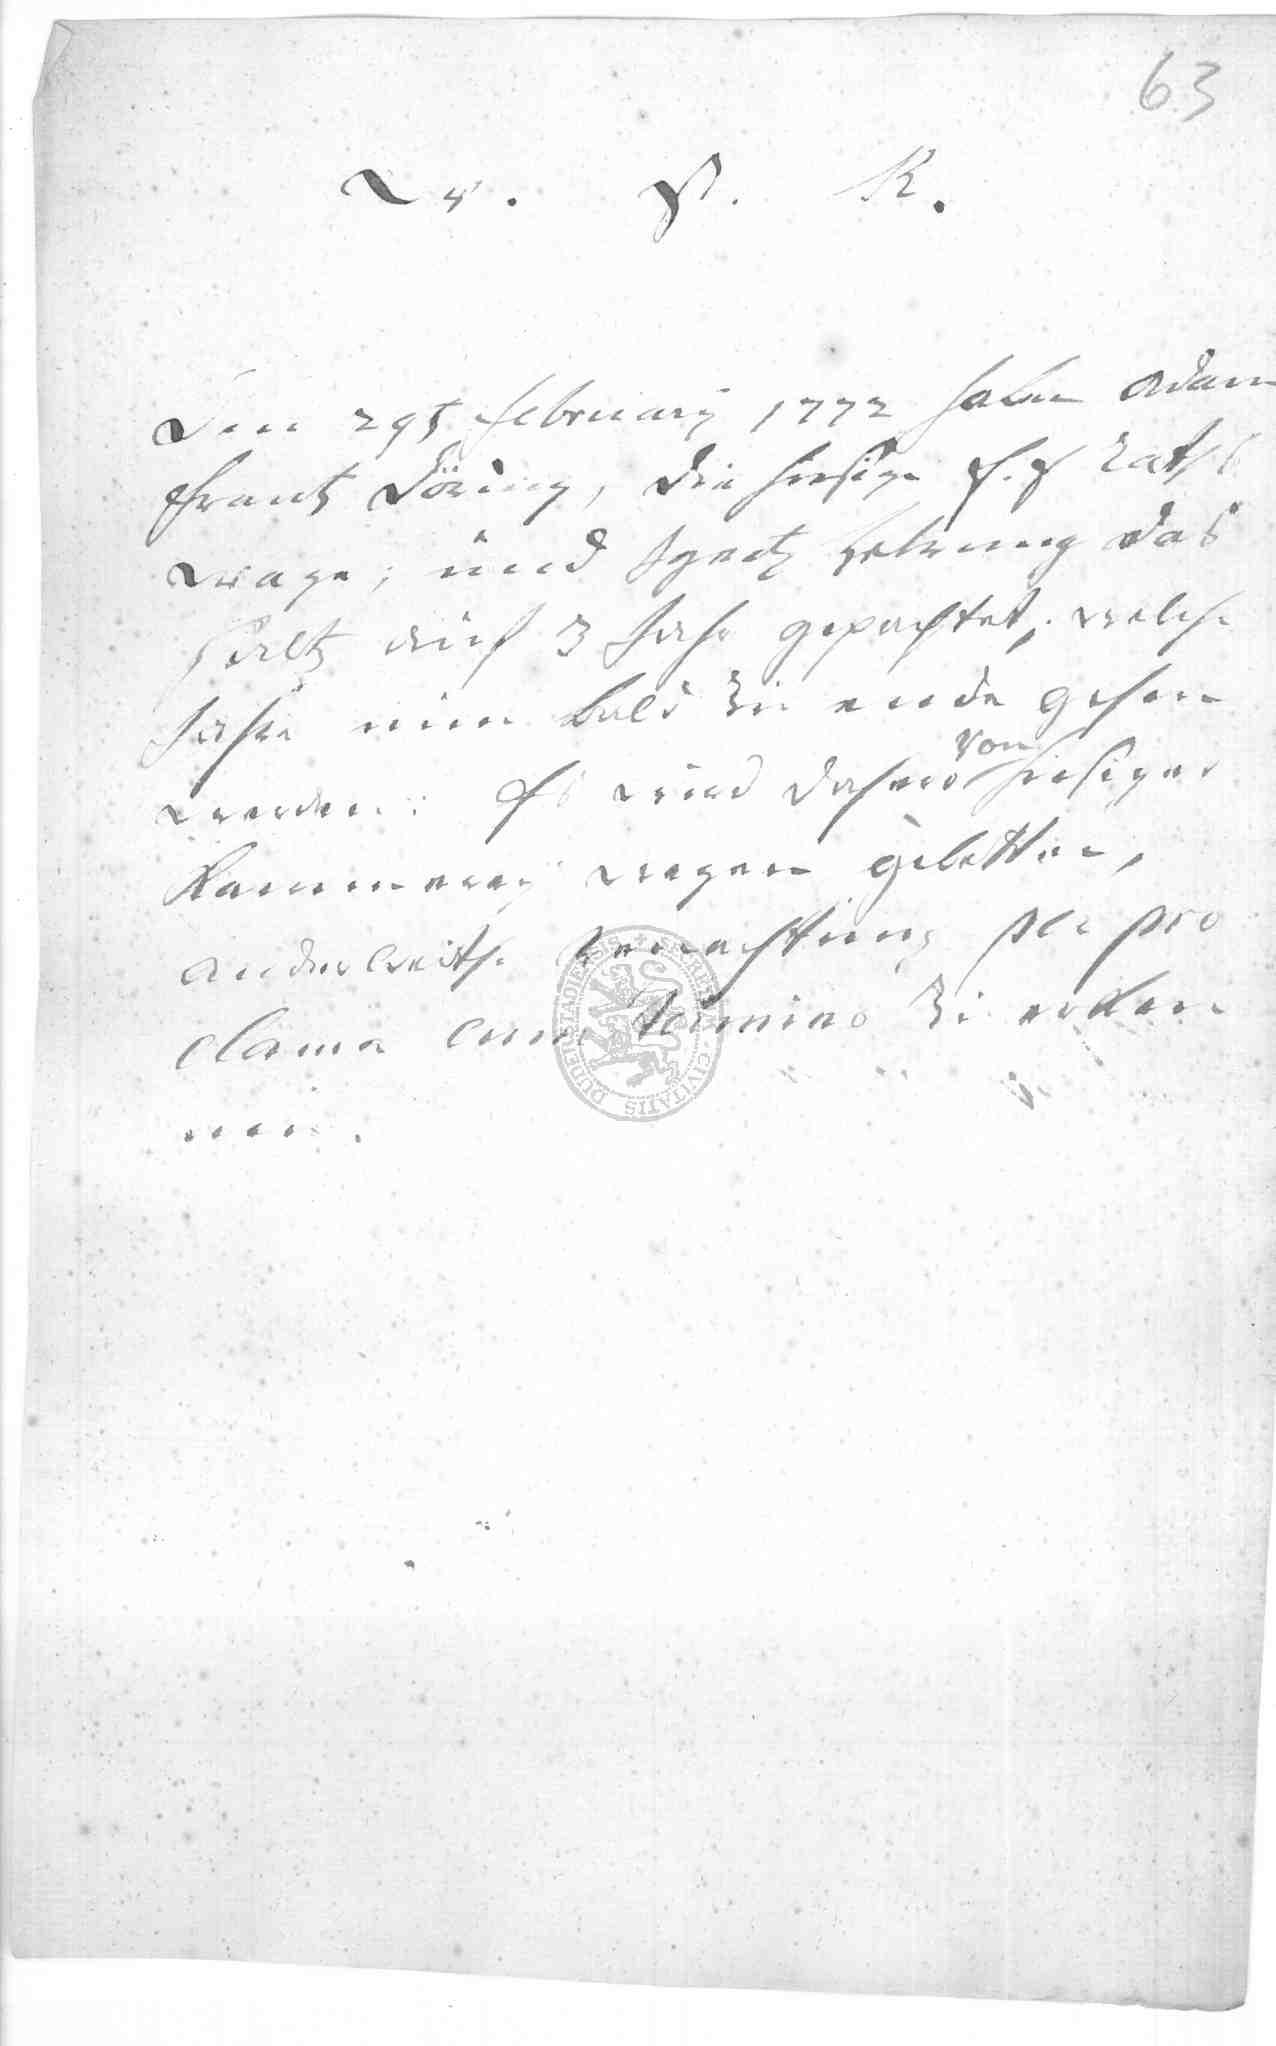 63
W. S. R.
Den 29t february 1772 haben Adam
Frantz Döring, die hiesige E. E. Raths
wage, und Ignatz das
Saltz auf 3 Jahr gepachtet, welche
Jahre nun bald zu ende gehen
werden. Es wird dahero von hiesiger
Kammerey wegen gebetten,
anderweithe verpachtung per pro
clama cum Termino zu erken
nen.
SECRETUM CIVITATIS DUDERSTADIENSIS